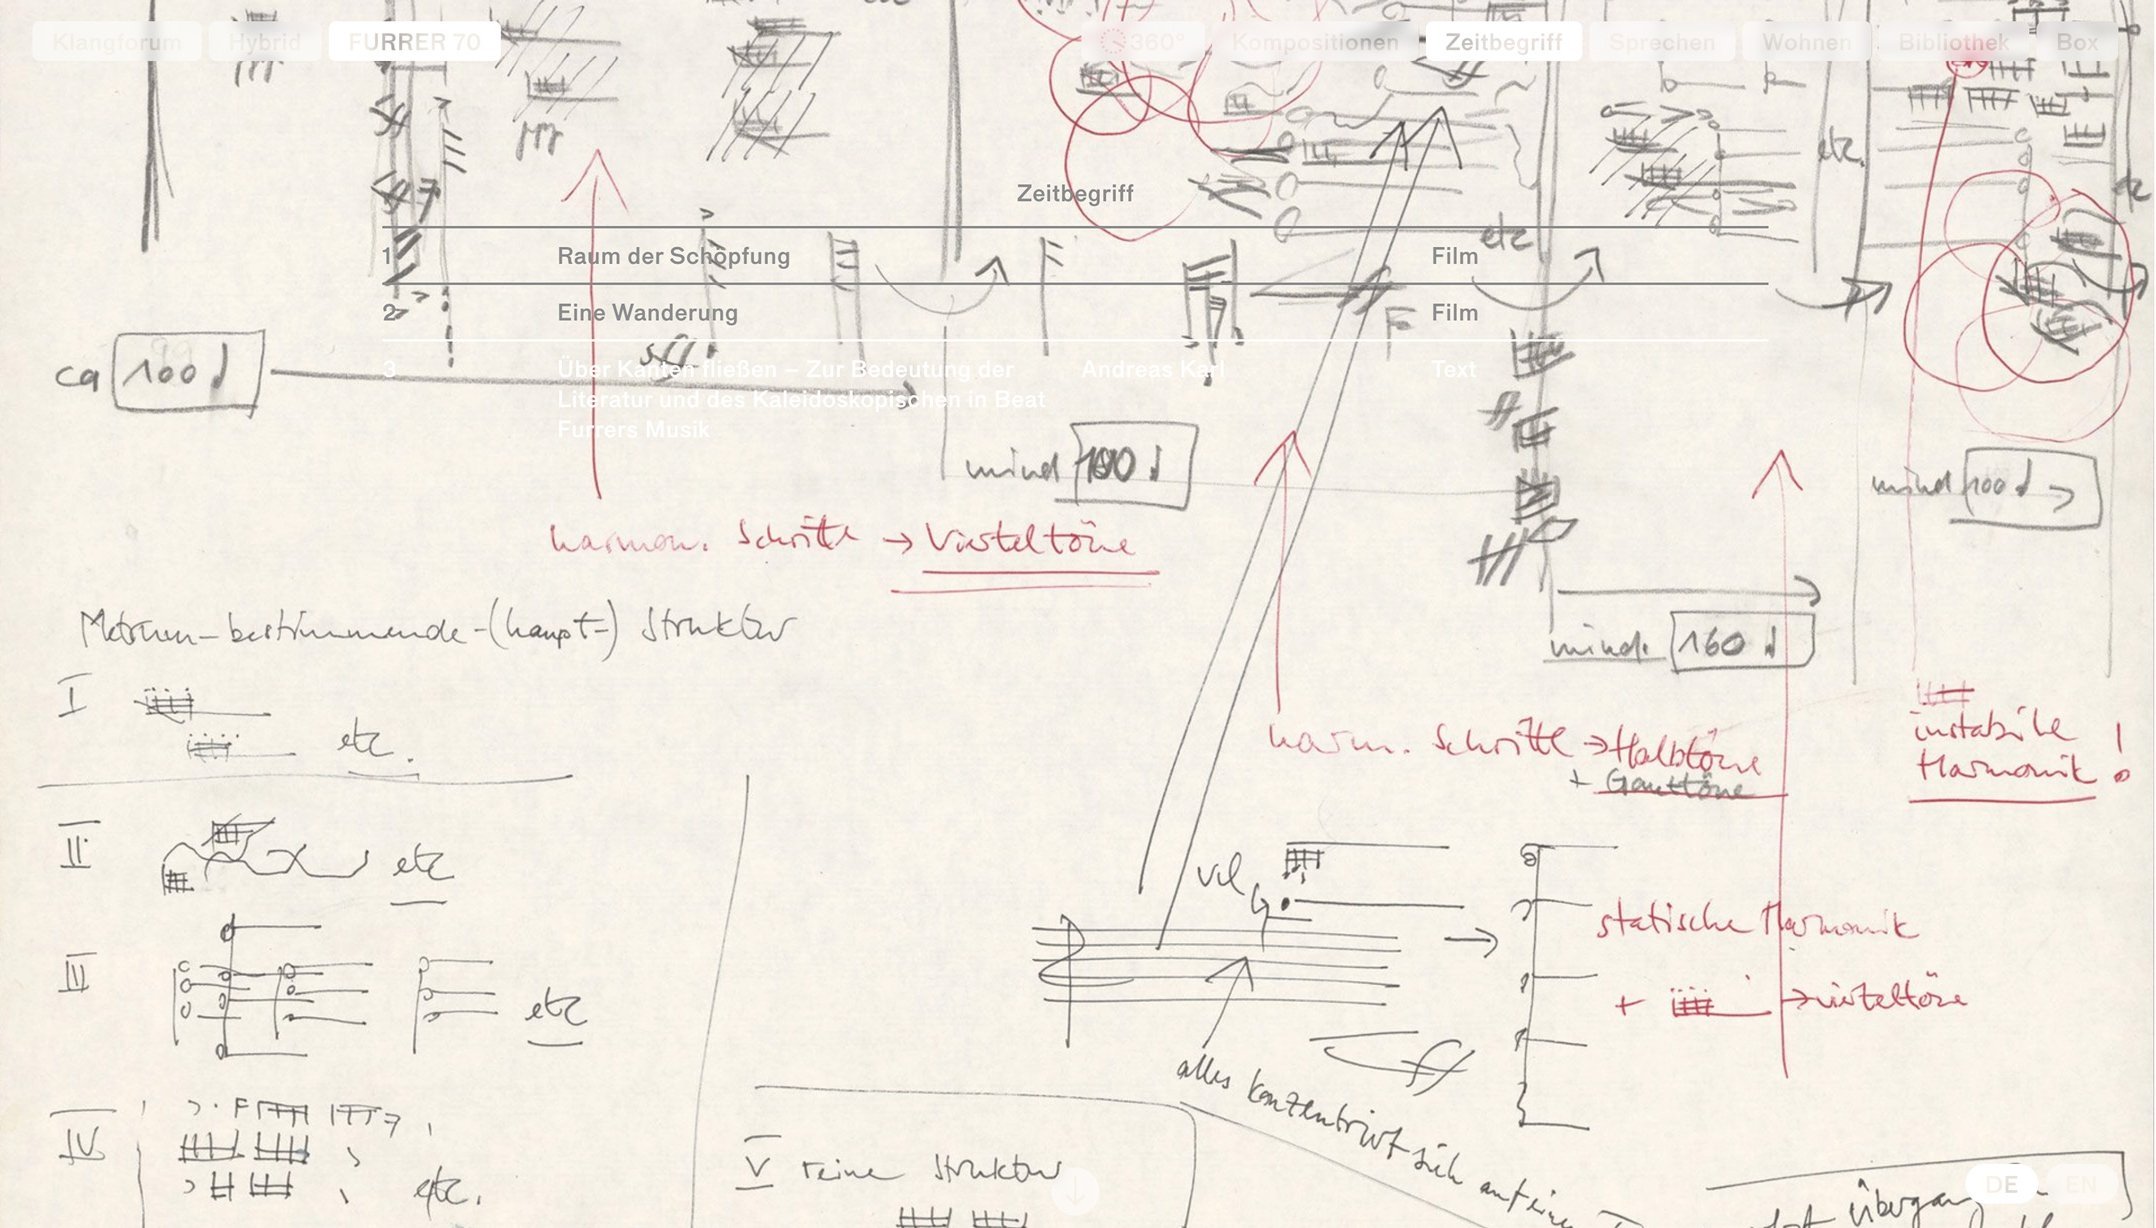 Klangforum Hybrid FURRER 70 360° Kompositionen Zeitbegriff Sprechen Wohnen Bibliothek Box
etc.
Zeitbegriff
etc
1 Raum der Schöpfung Film
2 Eine Wanderung Film
3 Über Kanten fließen – Zur Bedeutung der Andreas Karl Text
Literatur und des Kaleidoskopischen in Beat
Furrers Musik
ca 160
mind 100
mind 100
harmon. Schritte → Vierteltöne
mind. 160
bestimmende-(haupt-) Struktur
I etc.
harm. Schritte → Halbtöne
+ Ganztöne
instabile
Harmonik!
II etc
vcl
statische Harmonik
III etc
+ → vierteltöne
alles konzentriert sich auf ein
IV etc.
V reine Struktur
Übergang
DE EN